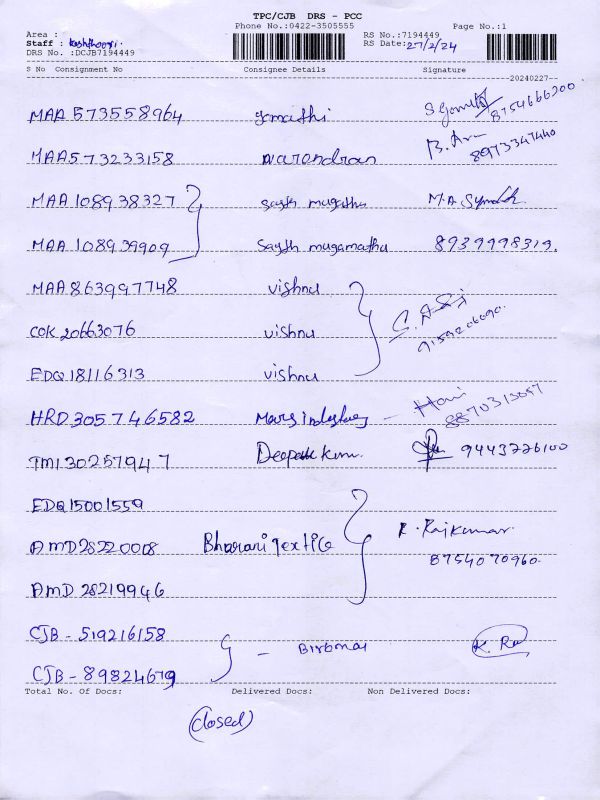 TPC/CJB DRS - PCC
Phone No.:0422-3505555 Page No.:1
Area : RS No.:7194449
Staff : RS Date:27/2/24
DRS No. :DCJB7194449
S No Consignment No Consignee Details Signature
20240227
MAA 573558964 gomathi 8754666200
MAA573233158 narendran 8973347440
MAA 108938327 sayth mugathu M.A
MAA 108939909 Sayth mugamathu 8939998319.
MAA 863997748 vishnu
COK 20663076 vishnu 9159206090.
EDQ 18116313 vishnu
HRD305746582 Hari
TMI 30257947 Deepak 9443226100
EDQ15001559
AMD28220008 Bharani Textile R. Rajkumar.
8754070960.
AMD 28219946
CJB - 519216158
CJB - 89824679 K. Ra
Total No. Of Docs: Delivered Docs: Non Delivered Docs:
(closed)